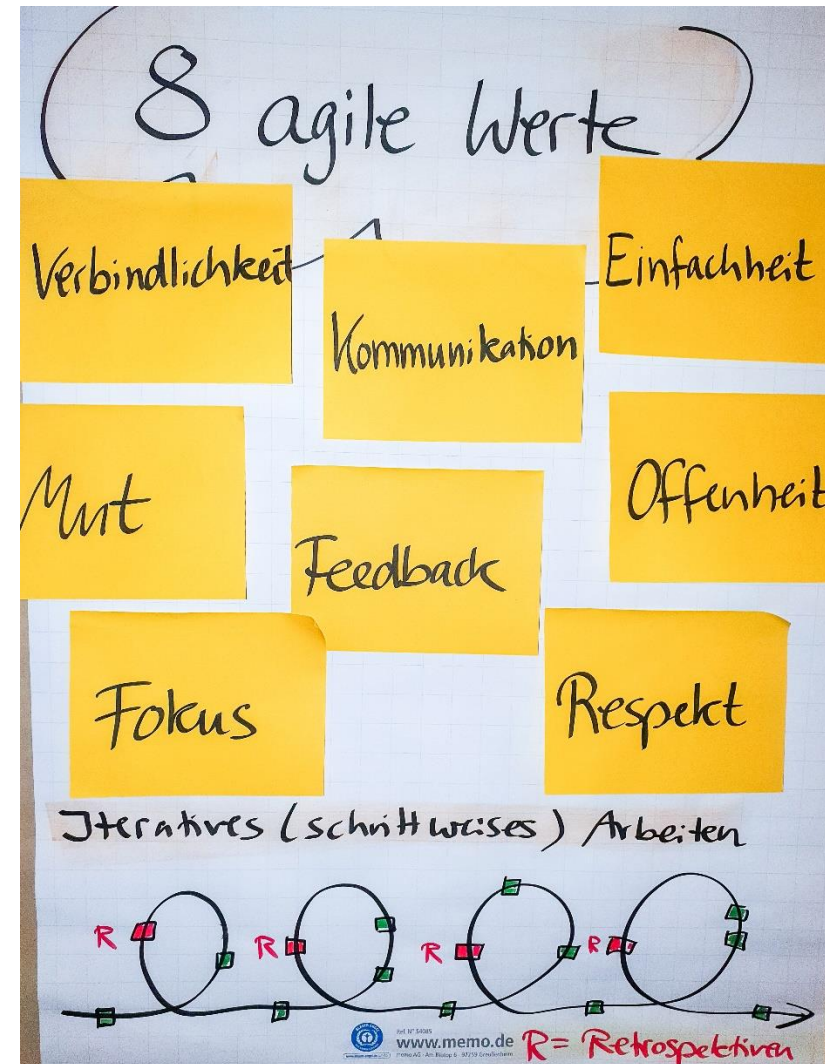 8 agile Werte
Verbindlichkeit
Kommunikation
Einfachheit
Mut
Feedback
Offenheit
Fokus
Respekt
Iteratives (schrittweises) Arbeiten
R R R R
www.memo.de
R= Retrospektiven